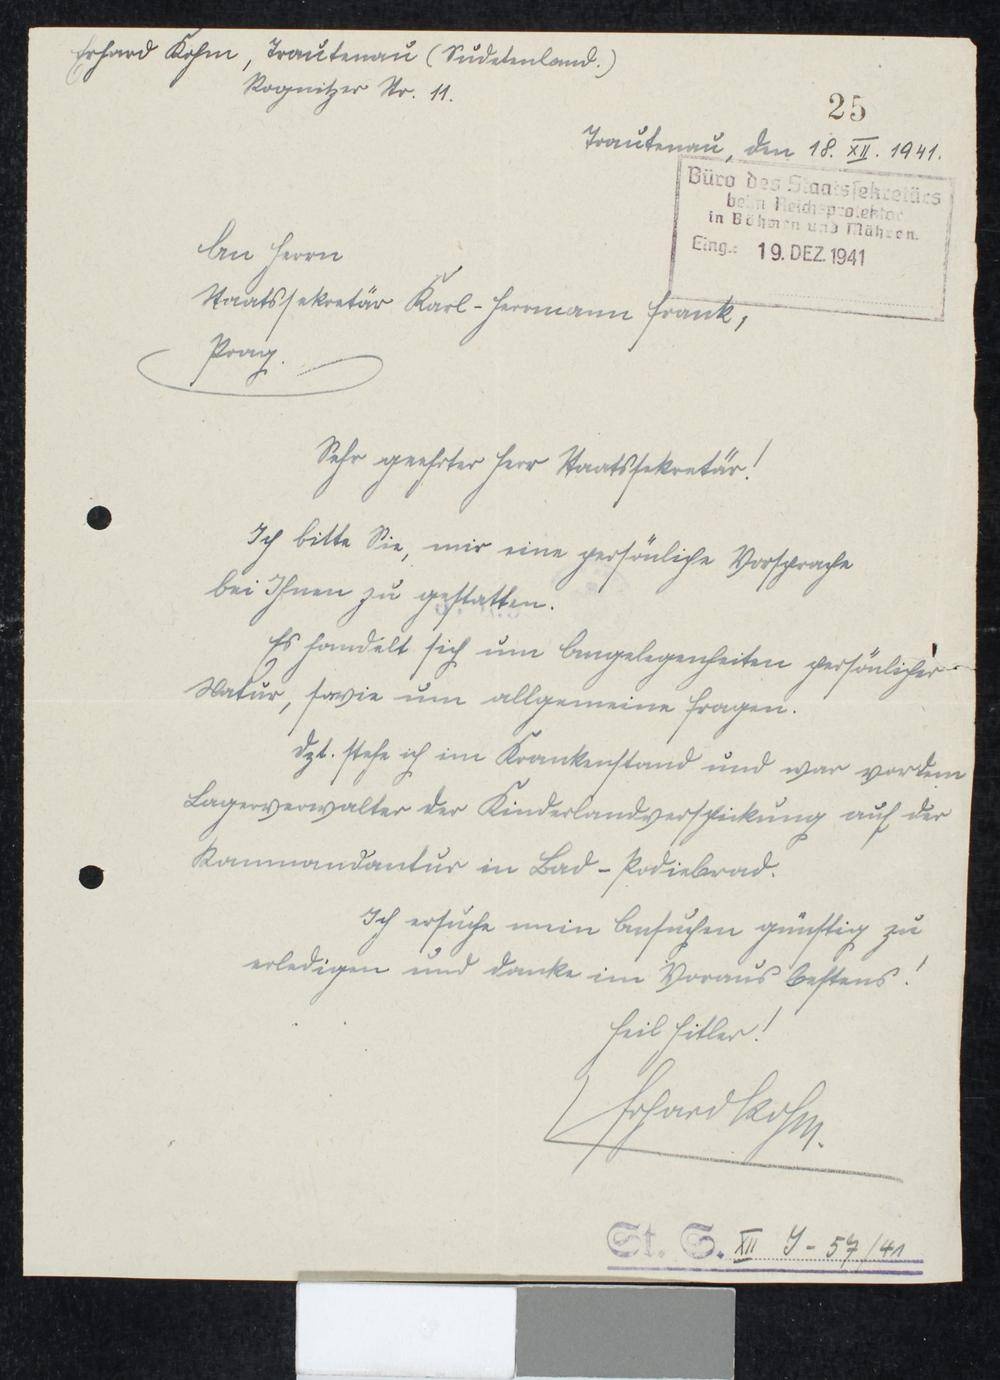 Erhard Kohm, Trautenau (Sudetenland.)
Rognitzer Str. 11.
25
Trautenau, den 18. XII. 1941.
Büro des Staatssekretärs
beim Reichsprotektor
in Böhmen und Mähren.
Eing.: 19. DEZ. 1941
An Herrn
Staatssekretär Karl-Herrmann Frank,
Prag.
Sehr geehrter Herr Staatssekretär!
Ich bitte Sie, mir eine persönliche Vorsprache
bei Ihnen zu gestatten.
Es handelt sich um Angelegenheiten persönlicher
Natur, sowie um allgemeine Fragen.
Dzt. stehe ich im Krankenstand und war vordem
Lagerverwalter der Kinderlandverschickung auf der
Kommandantur in Bad-Podiebrad.
Ich ersuche mein Ansuchen günstig zu
erledigen und danke im Voraus bestens!
Heil Hitler!
Erhard Kohm.
St. S. XII J-57/41